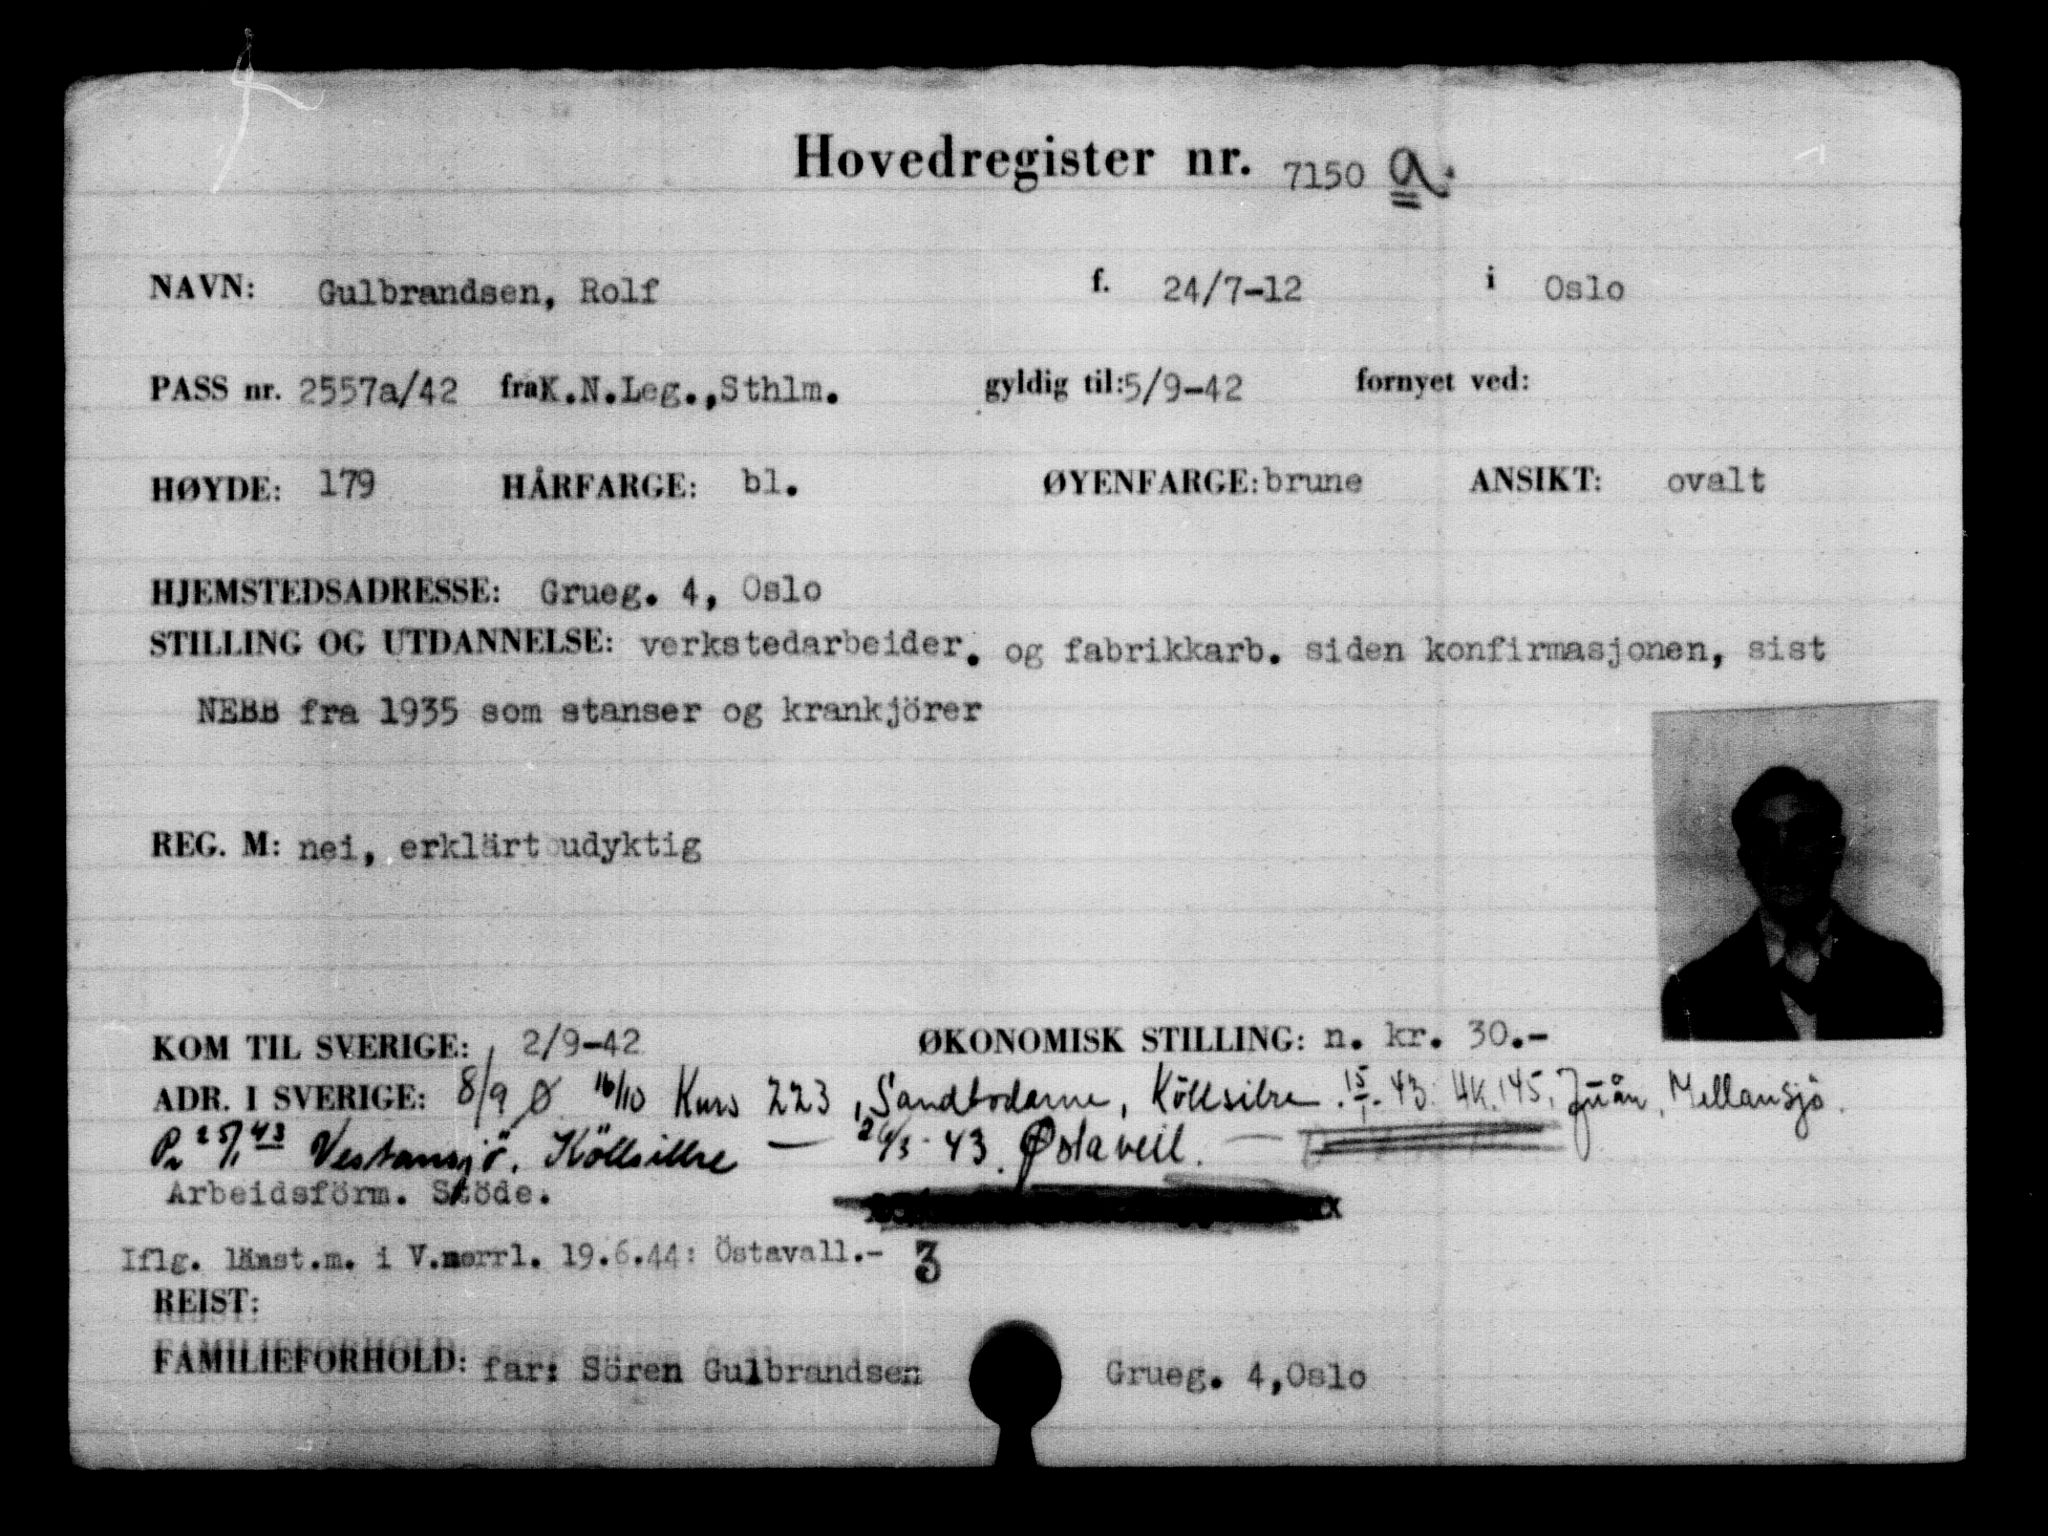 Hovedregister nr. 7150 a.
NAVN: Gulbrandsen, Rolf f. 24/7-12 i Oslo
PASS nr. 2557a/42 fra K.N.Leg.,Sthlm. gyldig til: 5/9-42 fornyet ved:
HØYDE: 179 HÅRFARGE: bl. ØYENFARGE: brune ANSIKT: ovalt
HJEMSTEDSADRESSE: Grueg. 4, Oslo
STILLING OG UTDANNELSE: verkstedarbeider. og fabrikkarb. siden konfirmasjonen, sist
NEBB fra 1935 som stanser og krankjörer
REG. M: nei, erklärt udyktig
KOM TIL SVERIGE: 2/9-42 ØKONOMISK STILLING: n. kr. 30.-
ADR. I SVERIGE: 8/9 Ø 16/10 Kurs 223, Sandbodarne, Köllsilre. 15/1-43. HK. 145, Juån, Mellansjö.
Pr 25/1 43 Vestansjö, Köllsillre — 26/3-43. Østavell. —
Arbeidsförm. Stöde.
Iflg. länst.m. i V.norrl. 19.6.44: Östavall.- 3
REIST:
FAMILIEFORHOLD: far: Sören Gulbrandsen Grueg. 4,Oslo